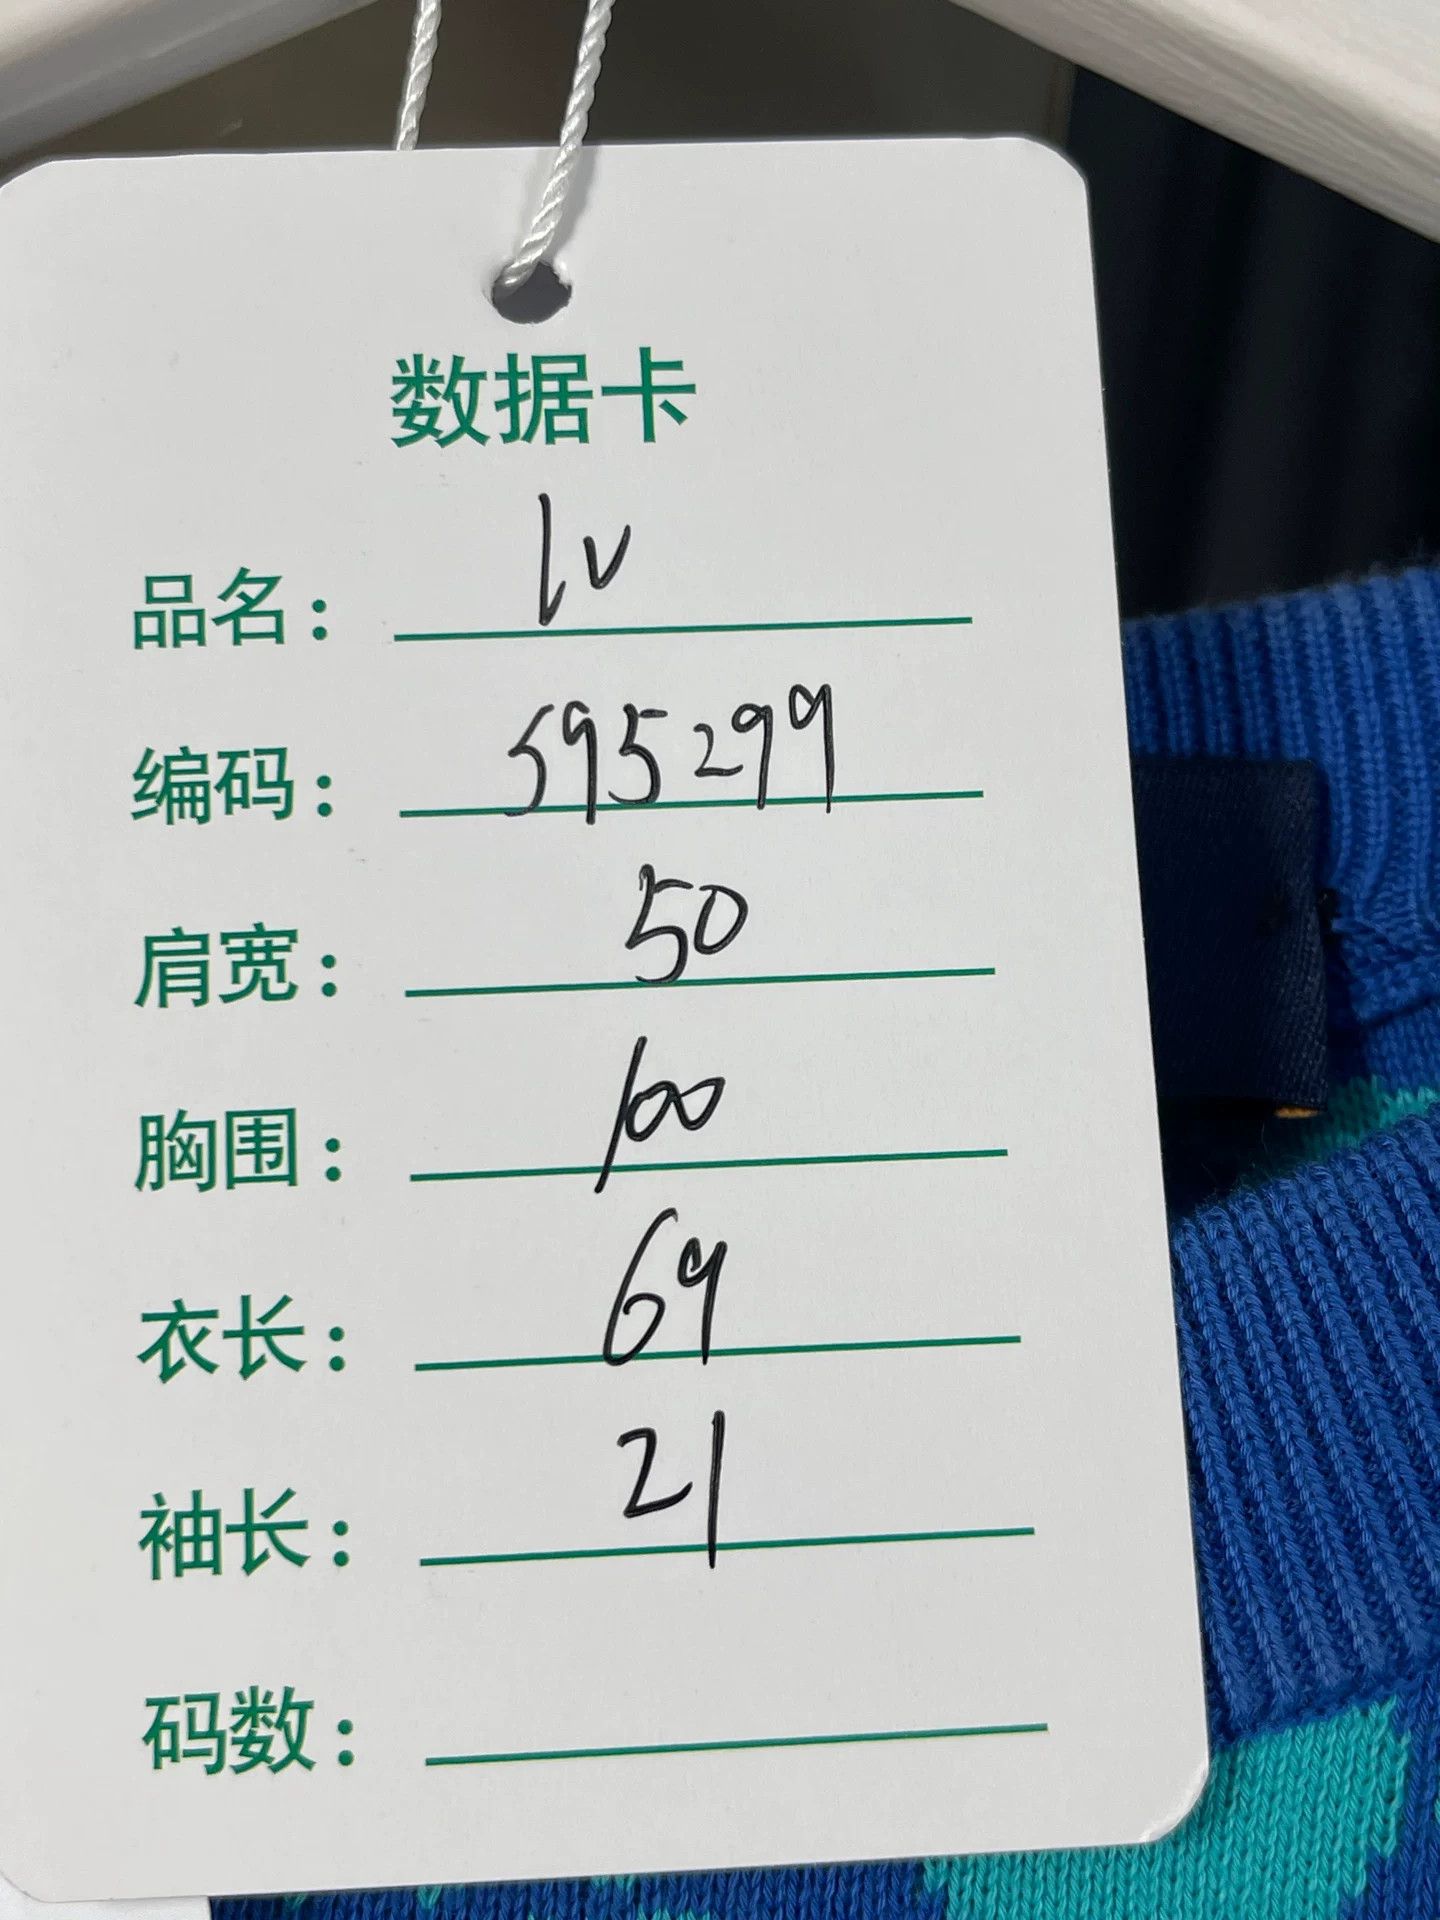 数据卡
品名: lv
编码: 595299
肩宽: 50
胸围: 100
衣长: 69
袖长: 21
码数: